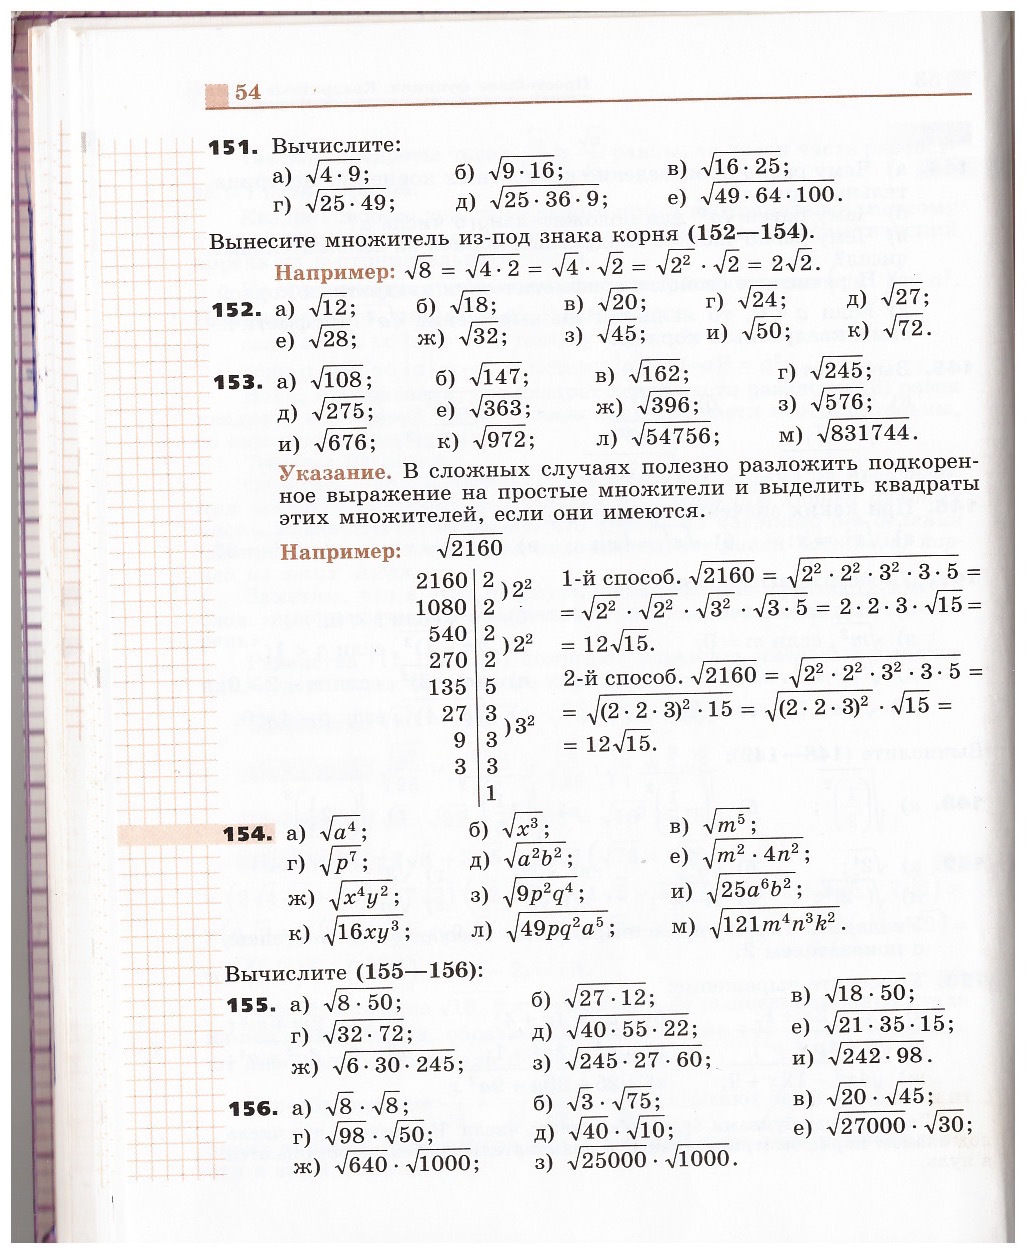 54
151. Вычислите:
а) √(4 · 9); б) √(9 · 16); в) √(16 · 25);
г) √(25 · 49); д) √(25 · 36 · 9); е) √(49 · 64 · 100).
Вынесите множитель из-под знака корня (152—154).
Например: √8 = √(4 · 2) = √4 · √2 = √(2²) · √2 = 2√2.
152. а) √12; б) √18; в) √20; г) √24; д) √27;
е) √28; ж) √32; з) √45; и) √50; к) √72.
153. а) √108; б) √147; в) √162; г) √245;
д) √275; е) √363; ж) √396; з) √576;
и) √676; к) √972; л) √54756; м) √831744.
Указание. В сложных случаях полезно разложить подкорен-
ное выражение на простые множители и выделить квадраты
этих множителей, если они имеются.
Например: √2160
2160 | 2
1080 | 2 ) 2²
540 | 2
270 | 2 ) 2²
135 | 5
27 | 3
9 | 3 ) 3²
3 | 3
1
1-й способ. √2160 = √(2² · 2² · 3² · 3 · 5) =
= √(2²) · √(2²) · √(3²) · √(3 · 5) = 2 · 2 · 3 · √15 =
= 12√15.
2-й способ. √2160 = √(2² · 2² · 3² · 3 · 5) =
= √((2 · 2 · 3)² · 15) = √((2 · 2 · 3)²) · √15 =
= 12√15.
154. а) √(a⁴); б) √(x³); в) √(m⁵);
г) √(p⁷); д) √(a²b²); е) √(m² · 4n²);
ж) √(x⁴y²); з) √(9p²q⁴); и) √(25a⁶b²);
к) √(16xy³); л) √(49pq²a⁵); м) √(121m⁴n³k²).
Вычислите (155—156):
155. а) √(8 · 50); б) √(27 · 12); в) √(18 · 50);
г) √(32 · 72); д) √(40 · 55 · 22); е) √(21 · 35 · 15);
ж) √(6 · 30 · 245); з) √(245 · 27 · 60); и) √(242 · 98).
156. а) √8 · √8; б) √3 · √75; в) √20 · √45;
г) √98 · √50; д) √40 · √10; е) √27000 · √30;
ж) √640 · √1000; з) √25000 · √1000.